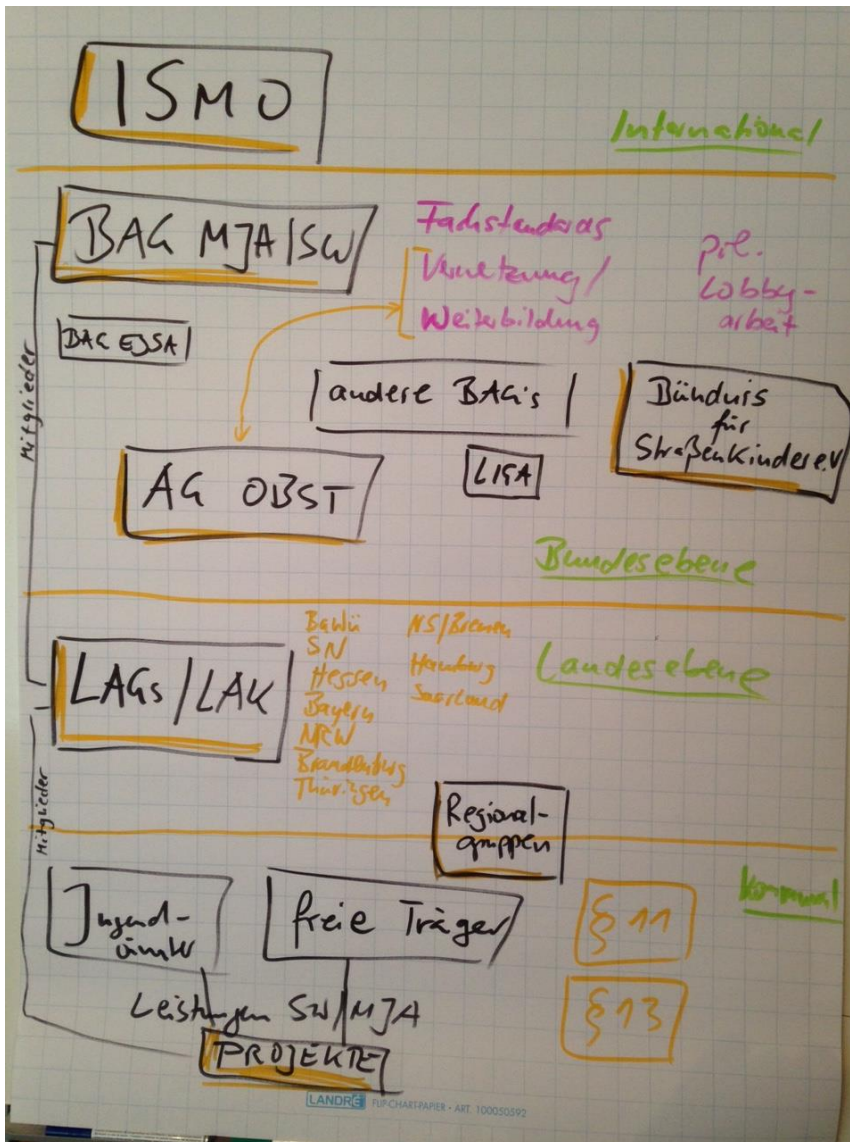 ISMO
International
BAG MJA/SW
Fachstandards
Vernetzung/
Weiterbildung
pol.
Lobby-
arbeit
BAG EJSA
Mitglieder
andere BAG's
Bündnis
für
Straßenkinder e.V
AG OBST
LIGA
Bundesebene
LAGs/LAK
BaWü
SN
Hessen
Bayern
NRW
Brandenburg
Thüringen
NS/Bremen
Hamburg
Saarland
Landesebene
Mitglieder
Regional-
gruppen
kommunal
Jugend-
ämter
freie Träger
§ 11
Leistungen SW/MJA
§ 13
PROJEKTE
LANDRÉ FLIP-CHART-PAPIER • ART. 100050592